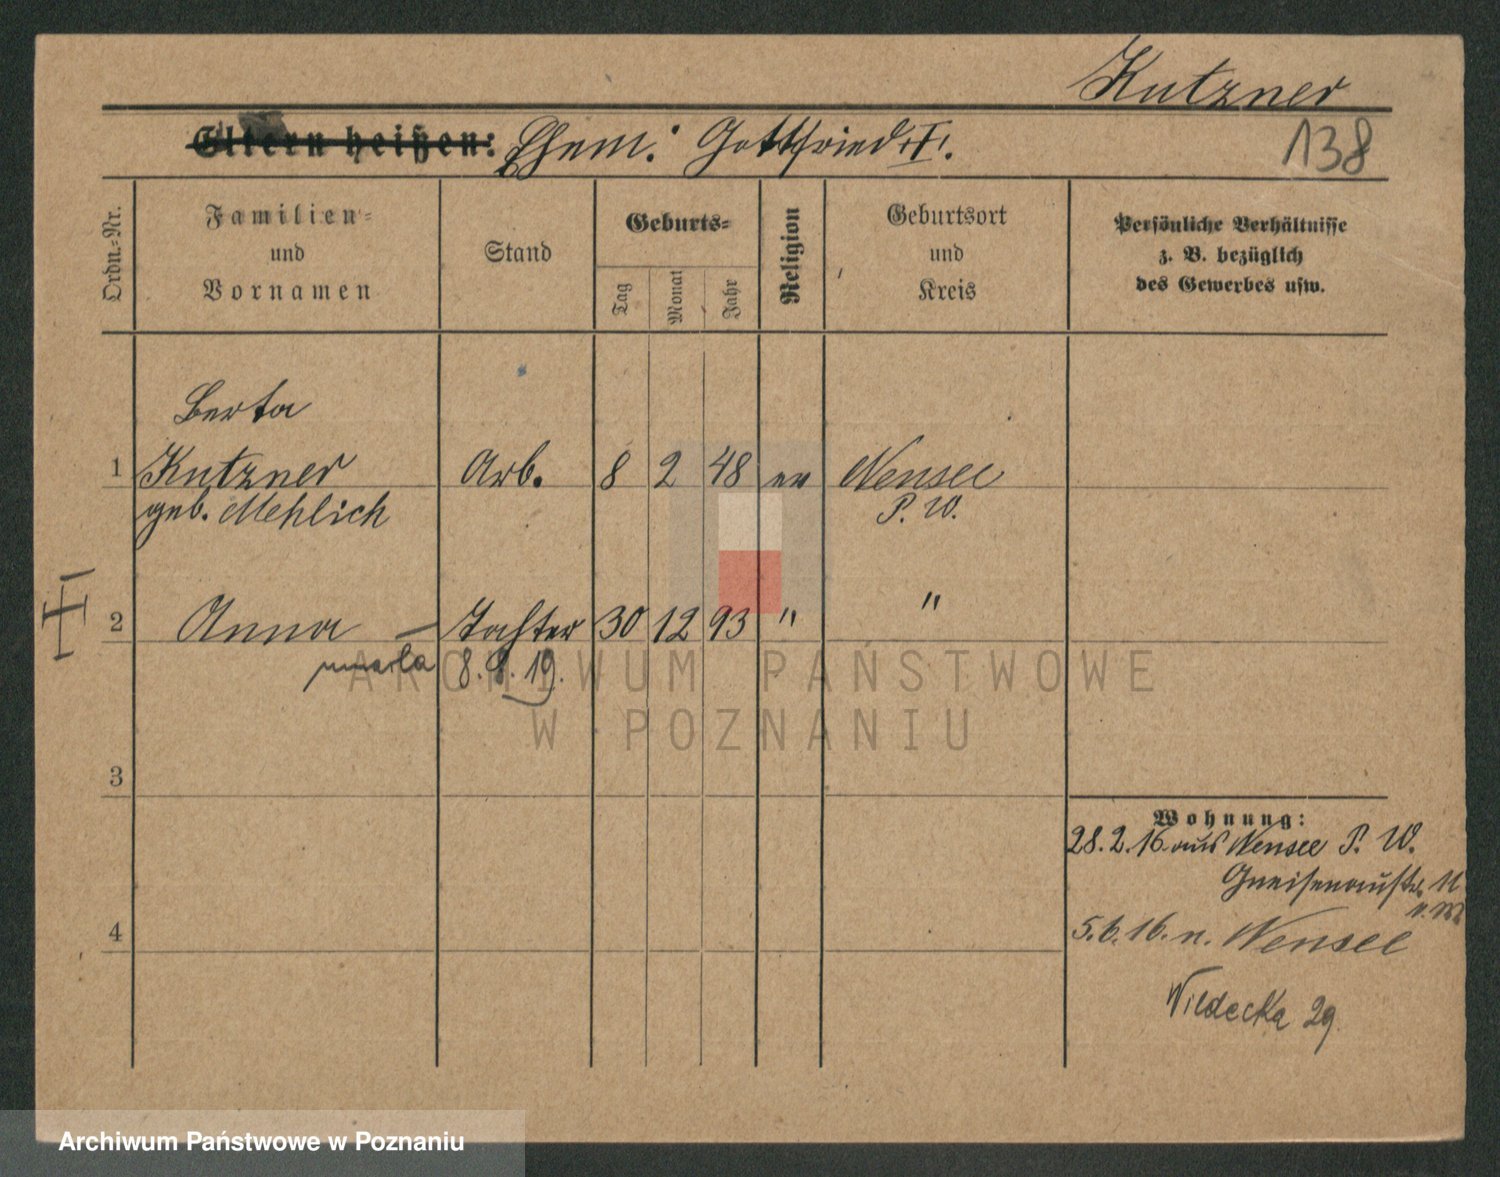 Kutzner
Eltern heißen: Ehem: Gottfried †.
138
Ordn.-Nr.
Familien-
und
Vornamen
Stand
Geburts-
Tag
Monat
Jahr
Religion
Geburtsort
und
Kreis
Persönliche Verhältnisse
z. B. bezüglich
des Gewerbes usw.
Berta
1 Kutzner Arb. 8 2 48 ev Wensee
geb. Mehlich P. W.
2 Anna – Tochter 30 12 93 " "
umarła 8.8.19.
ARCHIWUM PAŃSTWOWE
W POZNANIU
3
Wohnung:
28.2.16 aus Wensee P. W.
Gneisenaustr. 11
4
5.6.16. n. Wensee
Wildecka 29
Archiwum Państwowe w Poznaniu